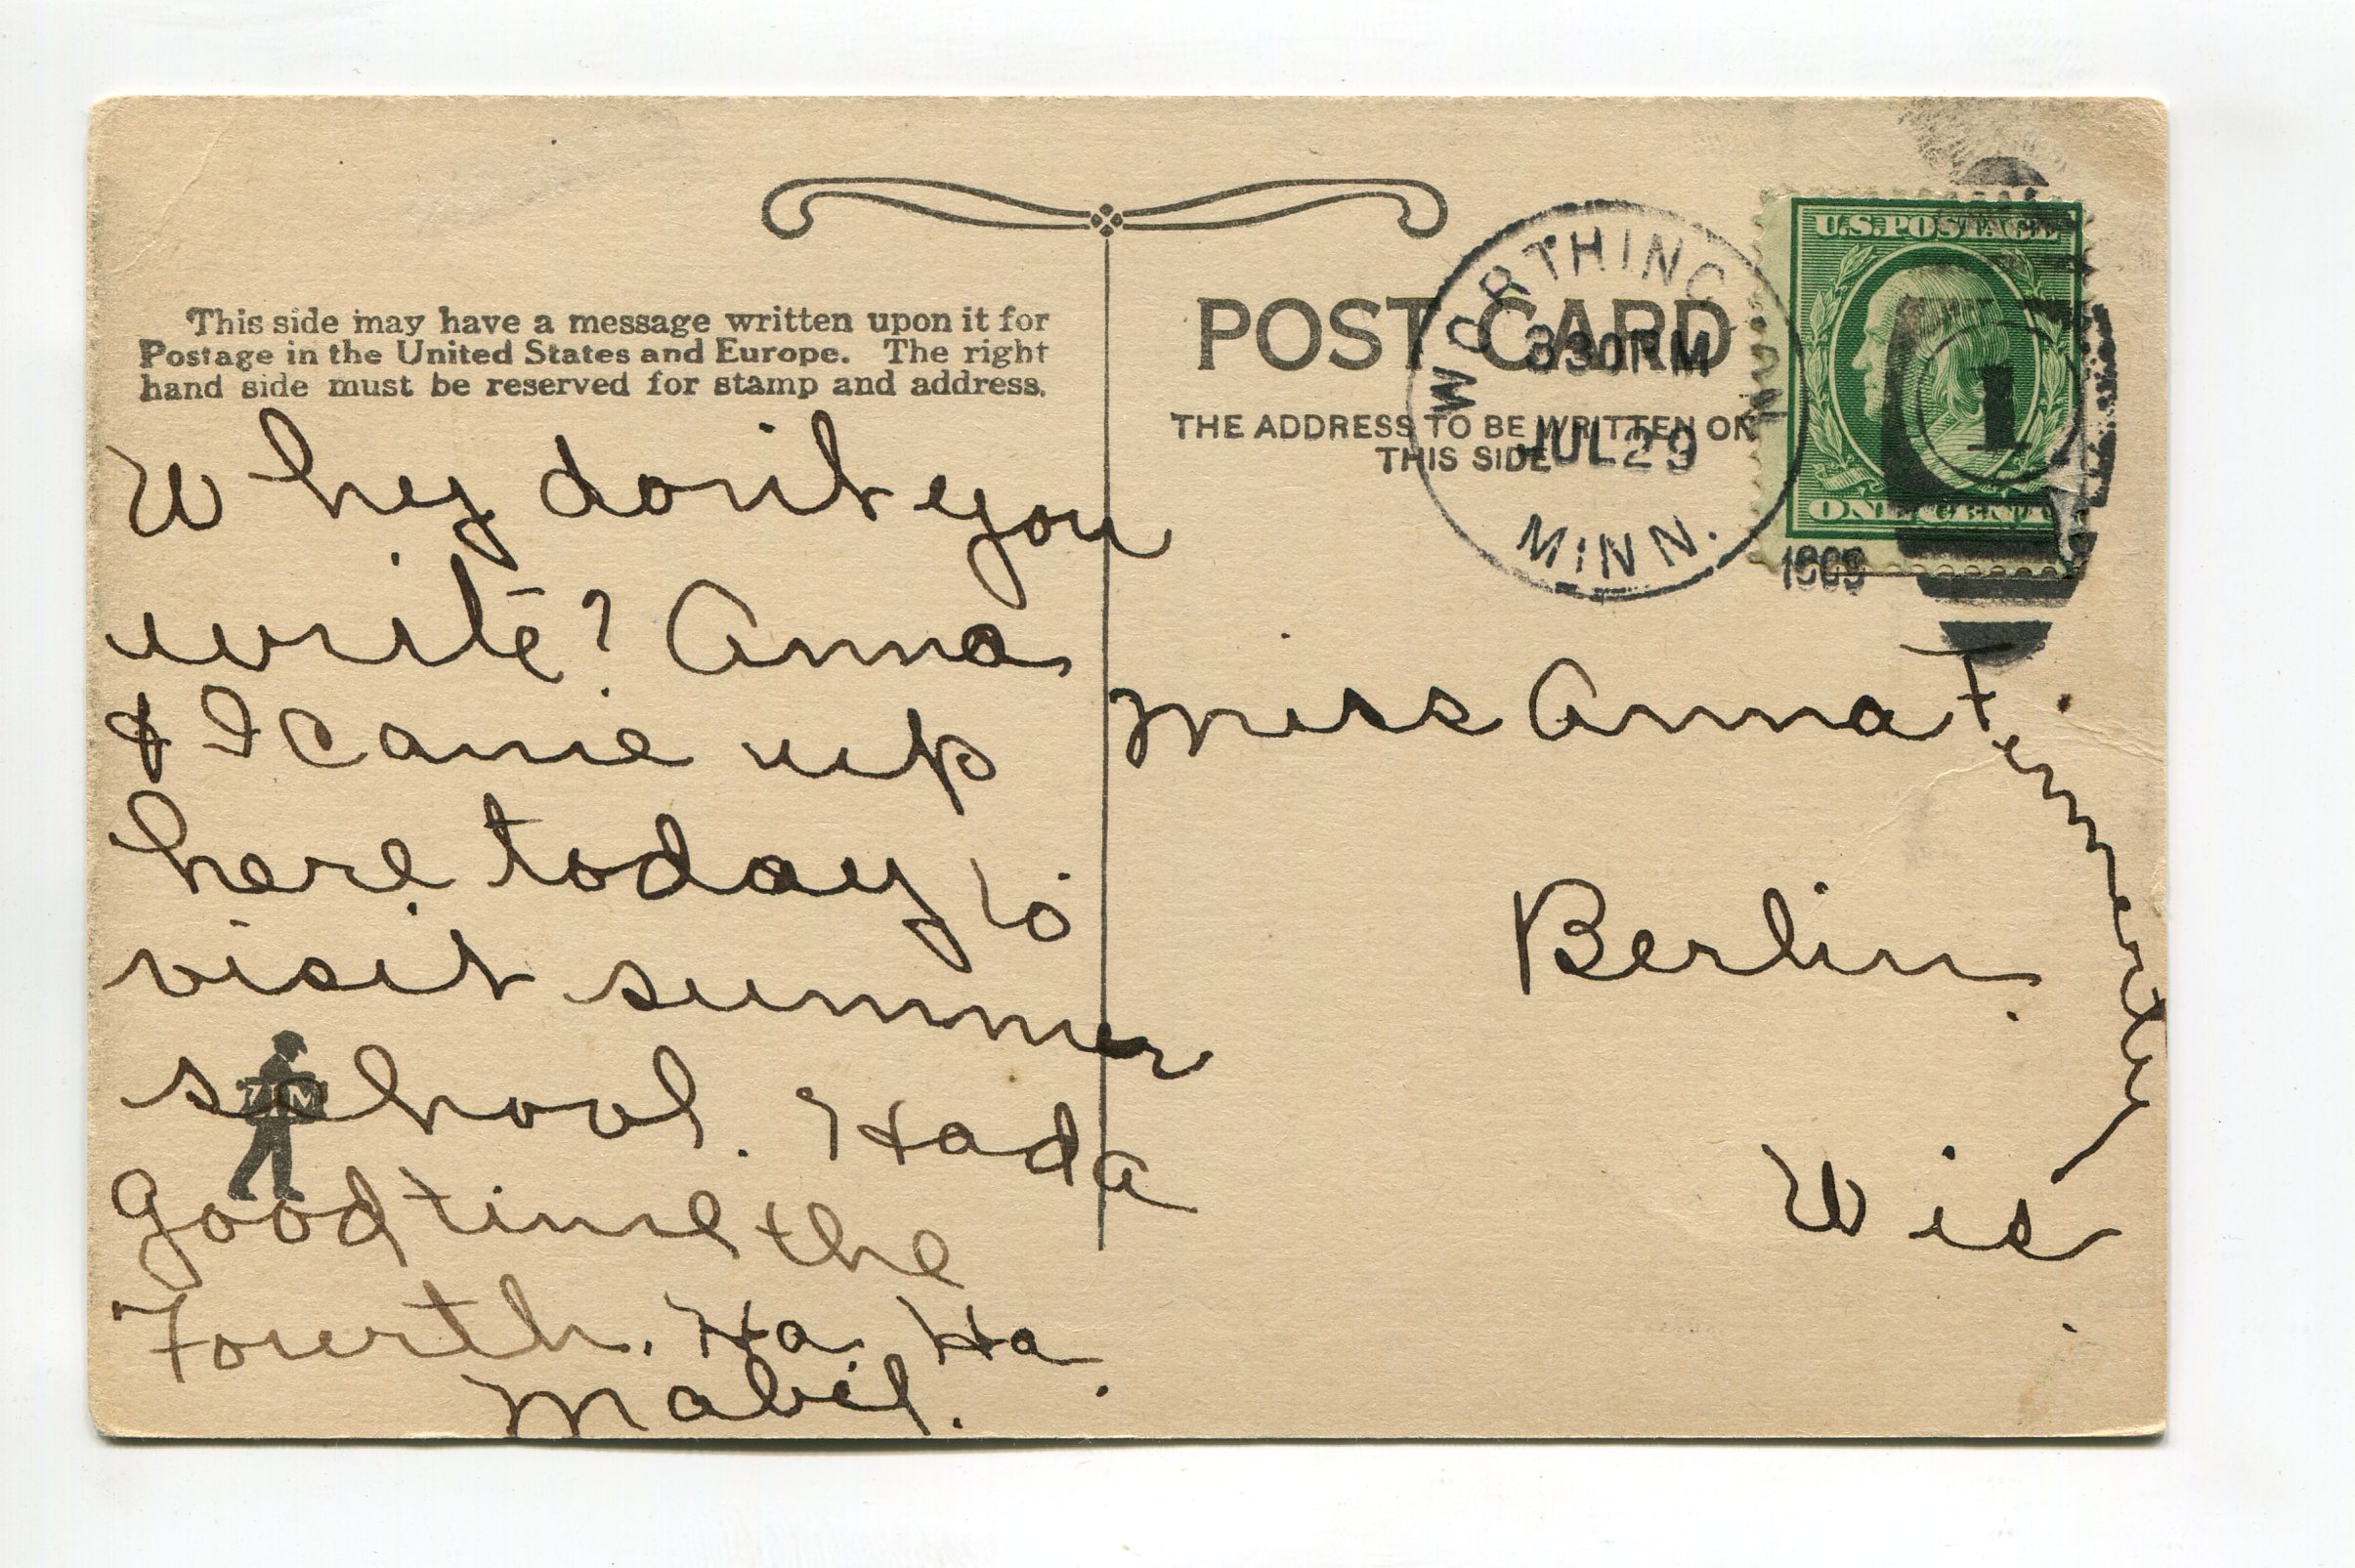 This side may have a message written upon it for
Postage in the United States and Europe. The right
hand side must be reserved for stamp and address.
Whey don't you
write? Anna
& I came up
here today to
visit summer
school. Had a
good time the
Fourth. Ha. Ha.
Mabel.
POST CARD
THE ADDRESS TO BE WRITTEN ON
THIS SIDE
WORTHING
330PM
JUL 29
MINN.
1909
U.S. POSTAGE
1
ONE CENT
Miss Anna
Berlin.
Wis.